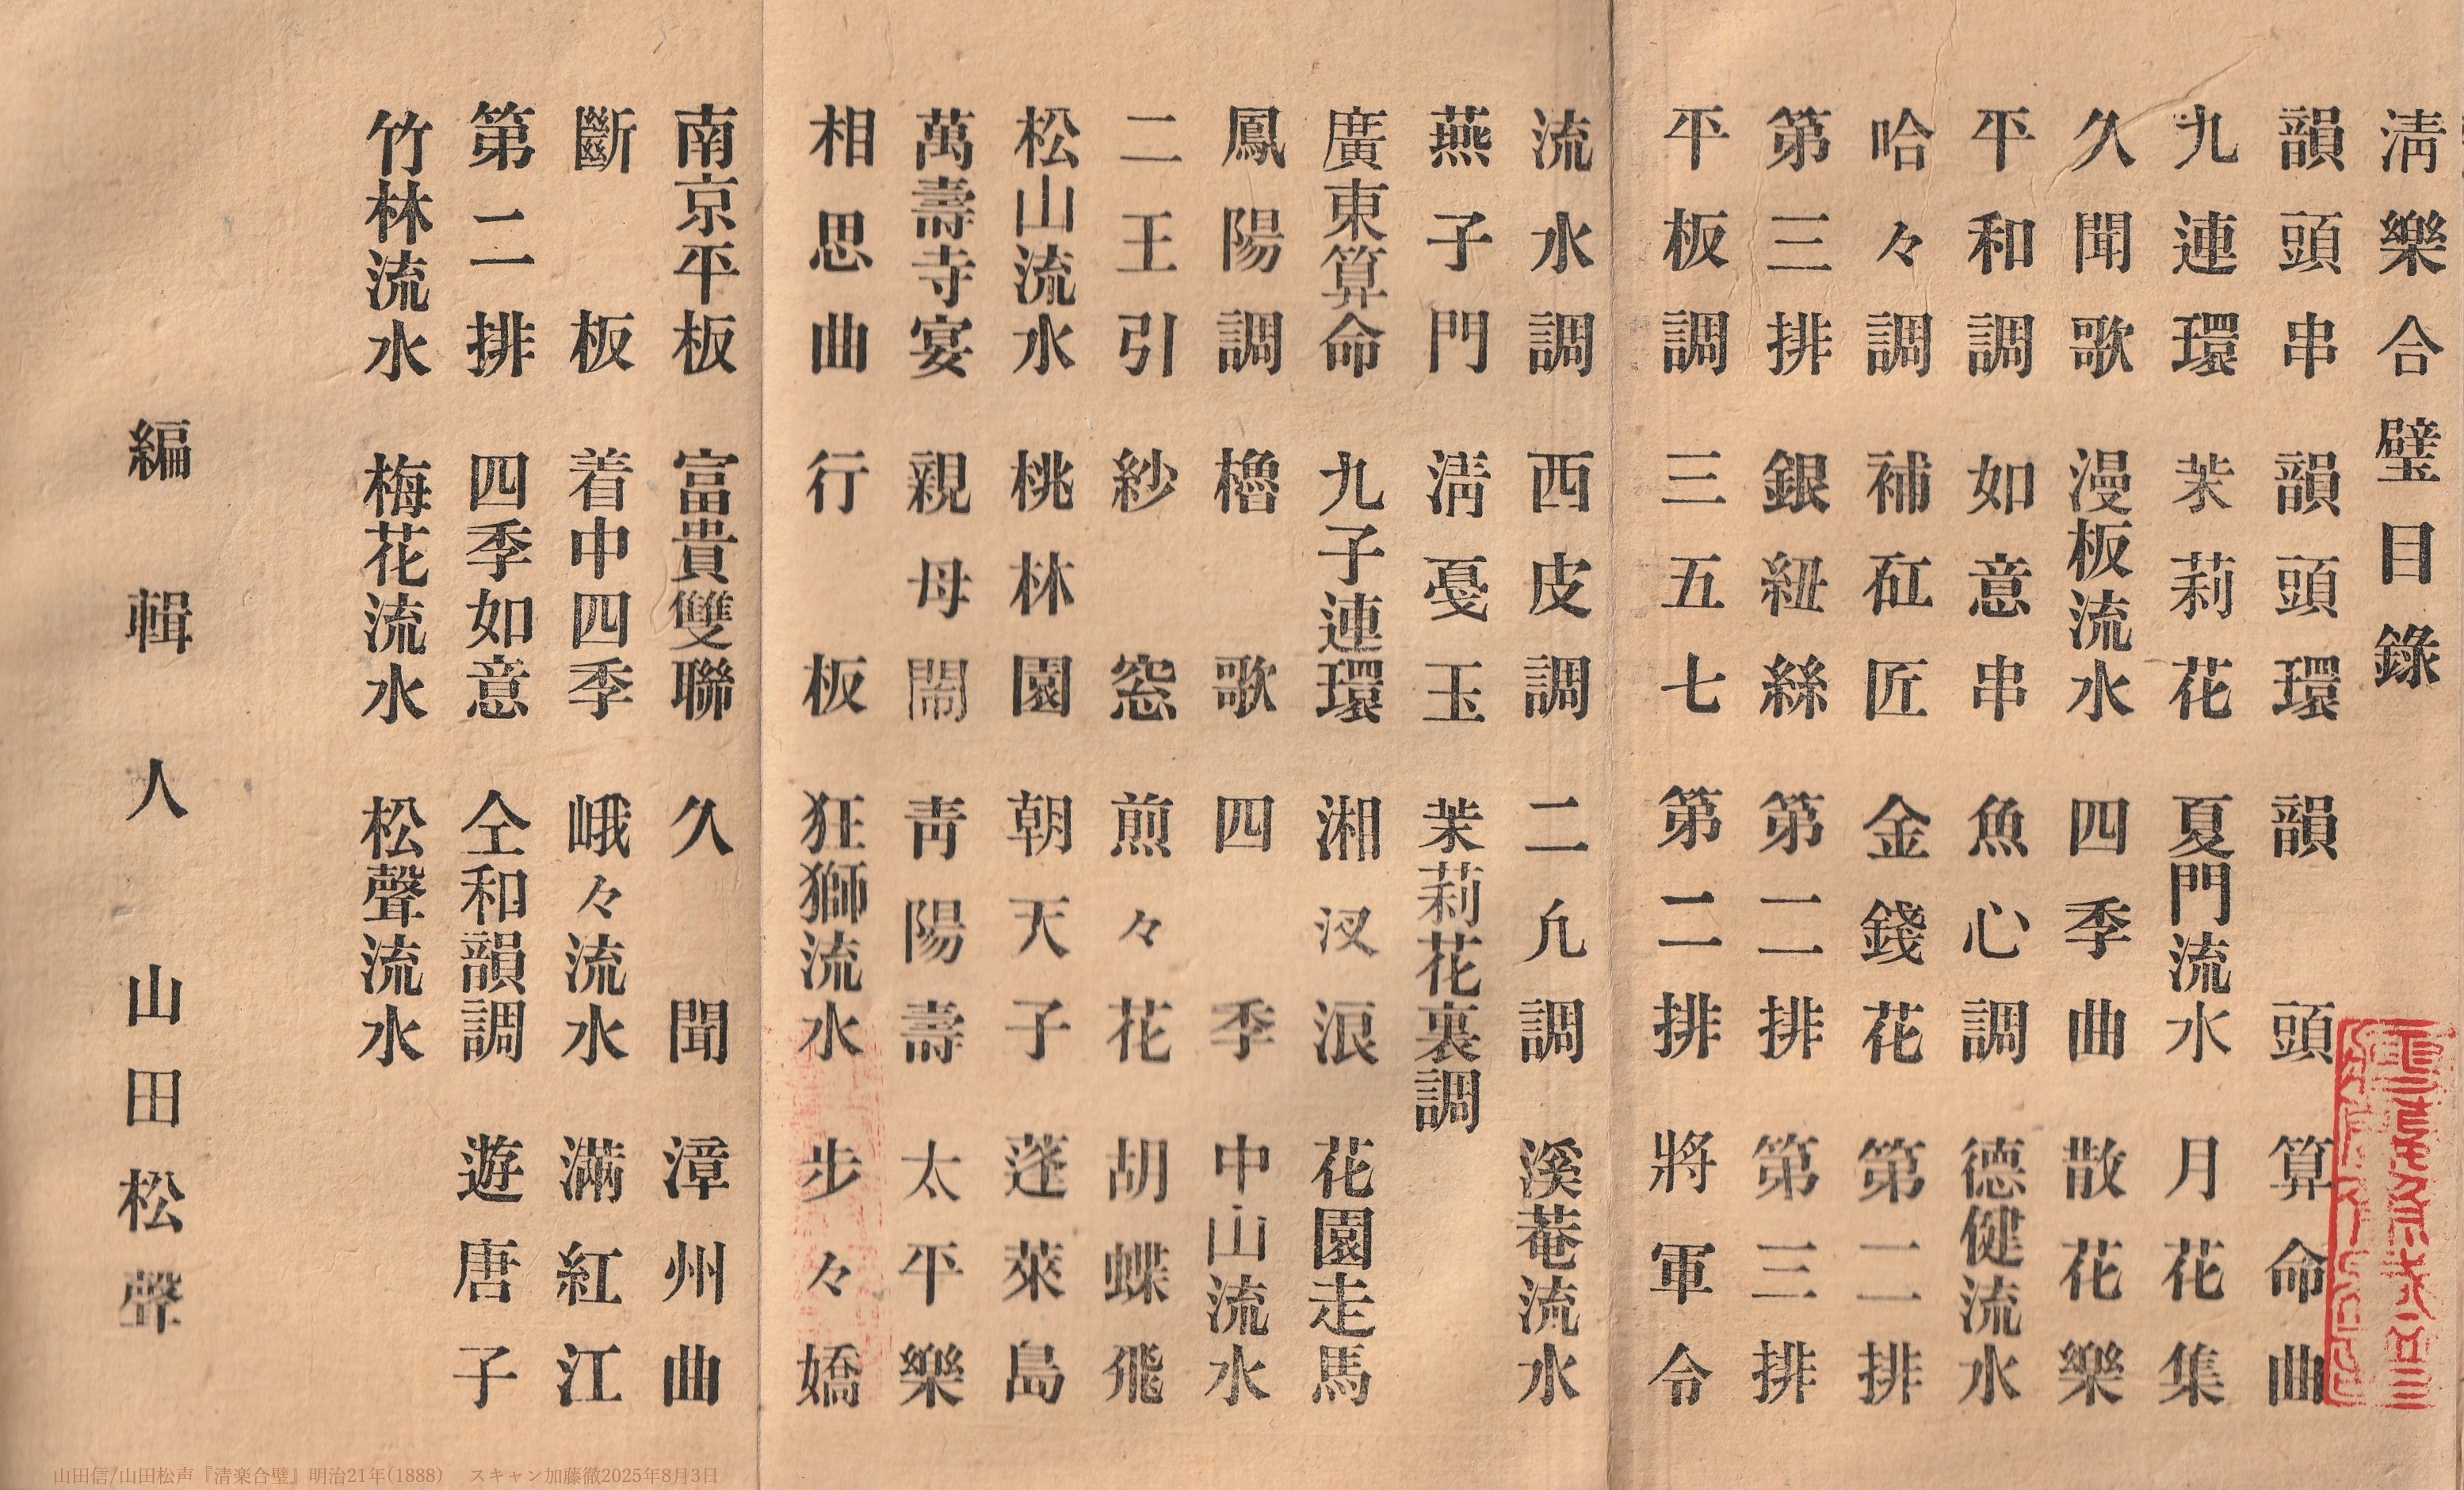 淸樂合璧目錄
韻頭串　韻頭環　韻頭　算命曲
九連環　茉莉花　夏門流水　月花集
久聞歌　漫板流水　四季曲　散花樂
平和調　如意串　魚心調　德健流水
哈々調　補矼匠　金錢花　第二排
第三排　銀紐絲　第二排　第三排
平板調　三五七　第二排　將軍令
流水調　西皮調　二凢調　溪菴流水
燕子門　淸戞玉　茉莉花裏調
廣東算命　九子連環　湘浪　花園走馬
鳳陽調　櫓歌　四季　中山流水
二王引　紗窓　煎々花　胡蝶飛
松山流水　桃林園　朝天子　蓬萊島
萬壽寺宴　親母鬧　靑陽壽　太平樂
相思曲　行板　狂獅流水　步々嬌
南京平板　富貴雙聯　久聞　漳州曲
斷板　着中四季　峨々流水　滿紅江
第二排　四季如意　仝和韻調　遊唐子
竹林流水　梅花流水　松聲流水
編輯人　山田松聲
山田信/山田松声『清楽合璧』明治21年(1888)　スキャン加藤徹2025年8月3日